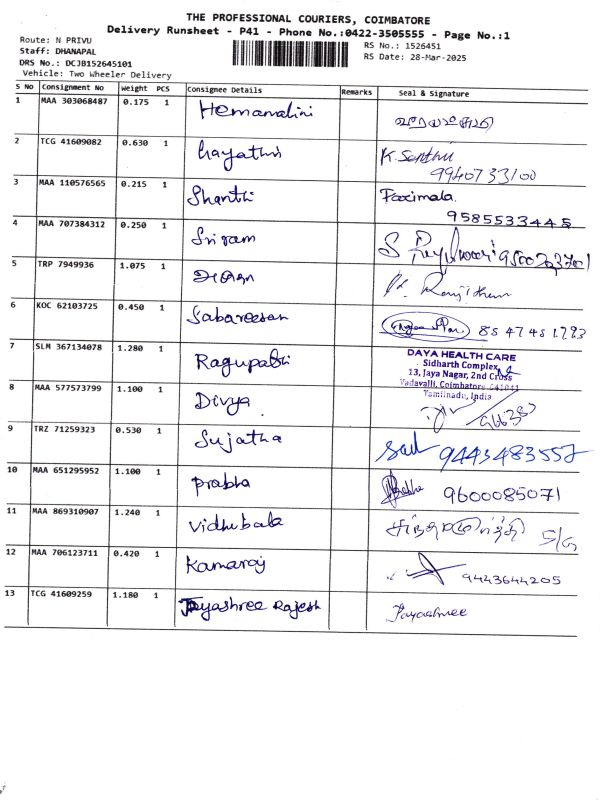 THE PROFESSIONAL COURIERS, COIMBATORE
Delivery Runsheet - P41 - Phone No.:0422-3505555 - Page No.:1
Route: N PRIVU
RS No.: 1526451
Staff: DHANAPAL
RS Date: 28-Mar-2025
DRS No.: DCJB152645101
Vehicle: Two Wheeler Delivery
S No Consignment No Weight PCS Consignee Details Remarks Seal & Signature
1 MAA 303068487 0.175 1 Hemamalini
2 TCG 41609082 0.630 1 Gayathri K. Senthil
9940733100
3 MAA 110576565 0.215 1 Shanthi
9585533445
4 MAA 707384312 0.250 1 Sriram S
5 TRP 7949936 1.075 1
6 KOC 62103725 0.450 1 Sabareesan
7 SLM 367134078 1.280 1 Ragupathi DAYA HEALTH CARE
Sidharth Complex,
13, Jaya Nagar, 2nd Cross
Vadavalli, Coimbatore 641041
Tamilnadu, India
8 MAA 577573799 1.100 1 Divya
9 TRZ 71259323 0.530 1 Sujatha 9443483557
10 MAA 651295952 1.100 1 Prabha 9600085071
11 MAA 869310907 1.240 1 Vidhubala
12 MAA 706123711 0.420 1 Kamaraj 9443644205
13 TCG 41609259 1.180 1 Jayashree Rajesh Jayashree